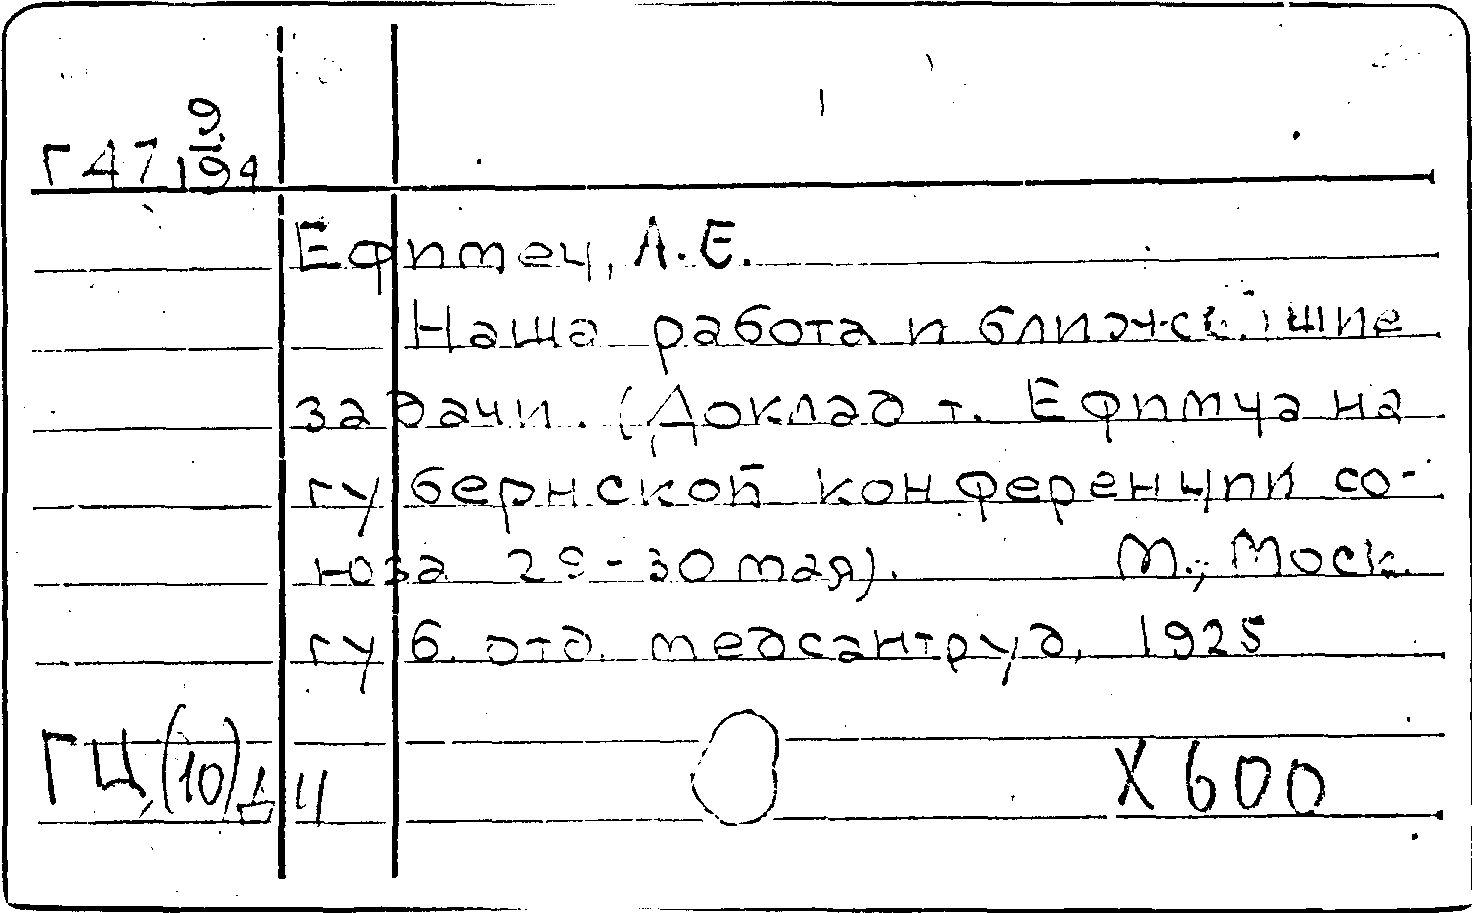 Г47 19/194
Ефимец, Л.Е.
Наша работа и ближейшие
задачи. (Доклад т. Ефимца на
губернской конференции со-
юза 29-30 мая). М., Моск.
губ. отд. медсантруд, 1925
ГЦ, (10) Д Ц
X 600